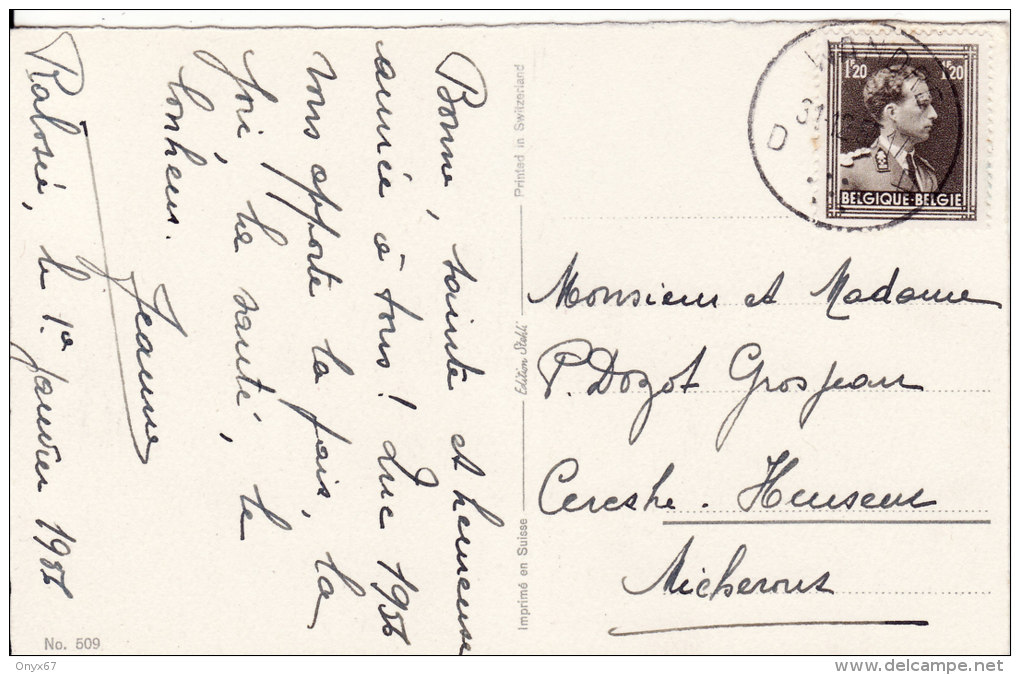 Bonne, sainte et heureuse
année à tous! Que 1956
vous apporte la paix, la
joie, la santé, le
bonheur.
Jeanne
Rabosée, le 1er Janvier 1956
No. 509
Imprimé en Suisse
Edition Stehli
Printed in Switzerland
1F20 1F20
BELGIQUE-BELGIE
D
Monsieur et Madame
P. Dozot Grosjean
Cerexhe. Heuseux
Micheroux
Onyx67
delcampe.net